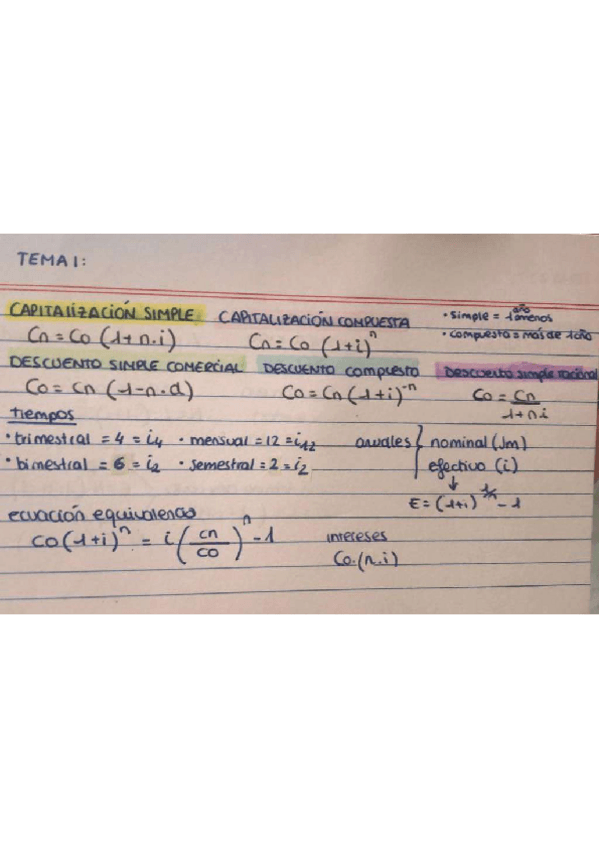 TEMA 1:
CAPITALIZACIÓN SIMPLE CAPITALIZACIÓN COMPUESTA · simple = 1 año o menos
Cn = Co (1+n.i) Cn = Co (1+i)^n · compuesta = más de 1 año
DESCUENTO SIMPLE COMERCIAL DESCUENTO compuesto DESCUENTO simple racional
Co = Cn (1-n.d) Co = Cn (1+i)^-n Co = Cn / 1+n.i
tiempos
· trimestral = 4 = i4 · mensual = 12 = i12 anuales { nominal (Jm)
· bimestral = 6 = i2 · semestral = 2 = i2 efectivo (i)
↓
E = (1+i)^1/n - 1
ecuación equivalencia
CO (1+i)^n = i (cn/CO)^n - 1 intereses
Co.(n.i)